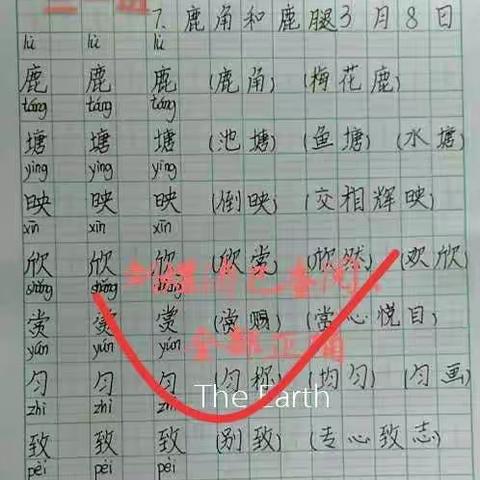 7. 鹿角和鹿腿3月8日
lù lù lù
鹿 鹿 鹿 (鹿角) (梅花鹿)
táng táng táng
塘 塘 塘 (池塘) (鱼塘) (水塘)
yìng yìng yìng
映 映 映 (倒映) (交相辉映)
xīn xīn xīn
欣 欣 欣 (欣赏) (欣然) (欢欣)
shǎng shǎng shǎng
赏 赏 赏 (赏赐) (赏心悦目)
yún yún yún
匀 匀 匀 (匀称) (均匀) (匀画)
The Earth
zhì zhì zhì
致 致 致 (别致) (专心致志)
pèi pèi pèi